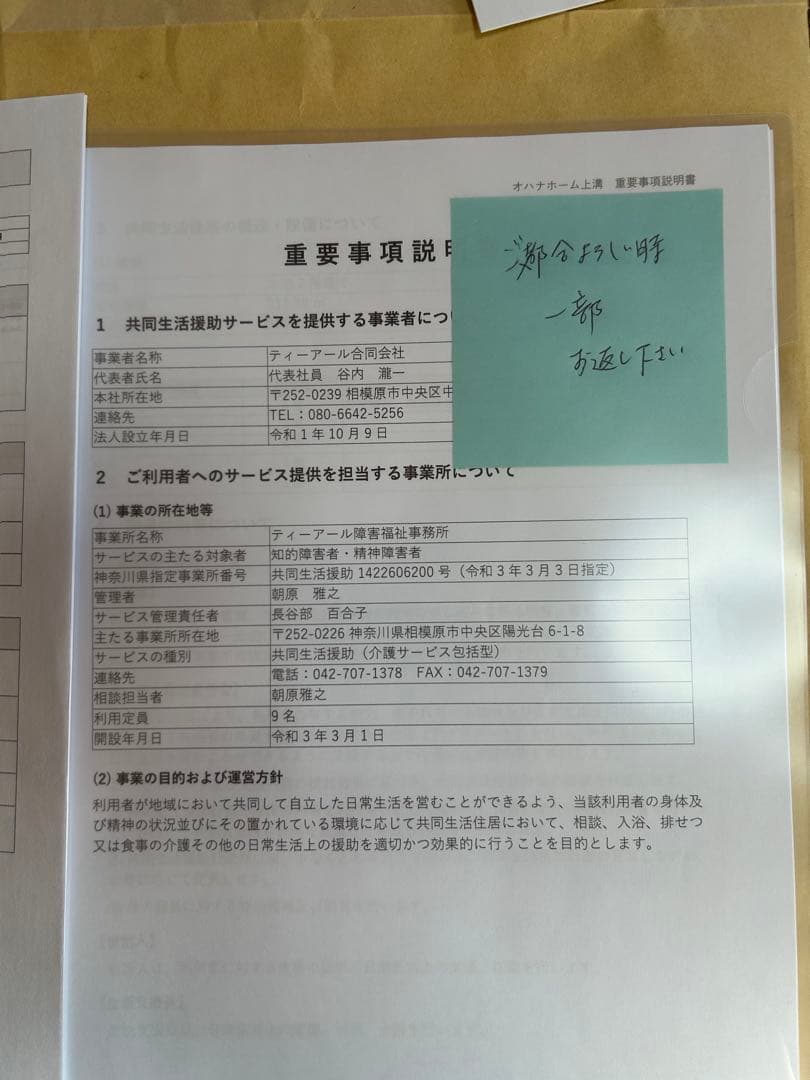 オハナホーム上溝　重要事項説明書
重要事項説明
ご都合よろしい時
一部
お返し下さい
1　共同生活援助サービスを提供する事業者につい
事業者名称　ティーアール合同会社
代表者氏名　代表社員　谷内　瀧一
本社所在地　〒252-0239 相模原市中央区中
連絡先　TEL：080-6642-5256
法人設立年月日　令和 1 年 10 月 9 日
2　ご利用者へのサービス提供を担当する事業所について
(1) 事業の所在地等
事業所名称　ティーアール障害福祉事務所
サービスの主たる対象者　知的障害者・精神障害者
神奈川県指定事業所番号　共同生活援助 1422606200 号（令和 3 年 3 月 3 日指定）
管理者　朝原　雅之
サービス管理責任者　長谷部　百合子
主たる事業所所在地　〒252-0226 神奈川県相模原市中央区陽光台 6-1-8
サービスの種別　共同生活援助（介護サービス包括型）
連絡先　電話：042-707-1378　FAX：042-707-1379
相談担当者　朝原雅之
利用定員　9 名
開設年月日　令和 3 年 3 月 1 日
(2) 事業の目的および運営方針
利用者が地域において共同して自立した日常生活を営むことができるよう、当該利用者の身体及
び精神の状況並びにその置かれている環境に応じて共同生活住居において、相談、入浴、排せつ
又は食事の介護その他の日常生活上の援助を適切かつ効果的に行うことを目的とします。